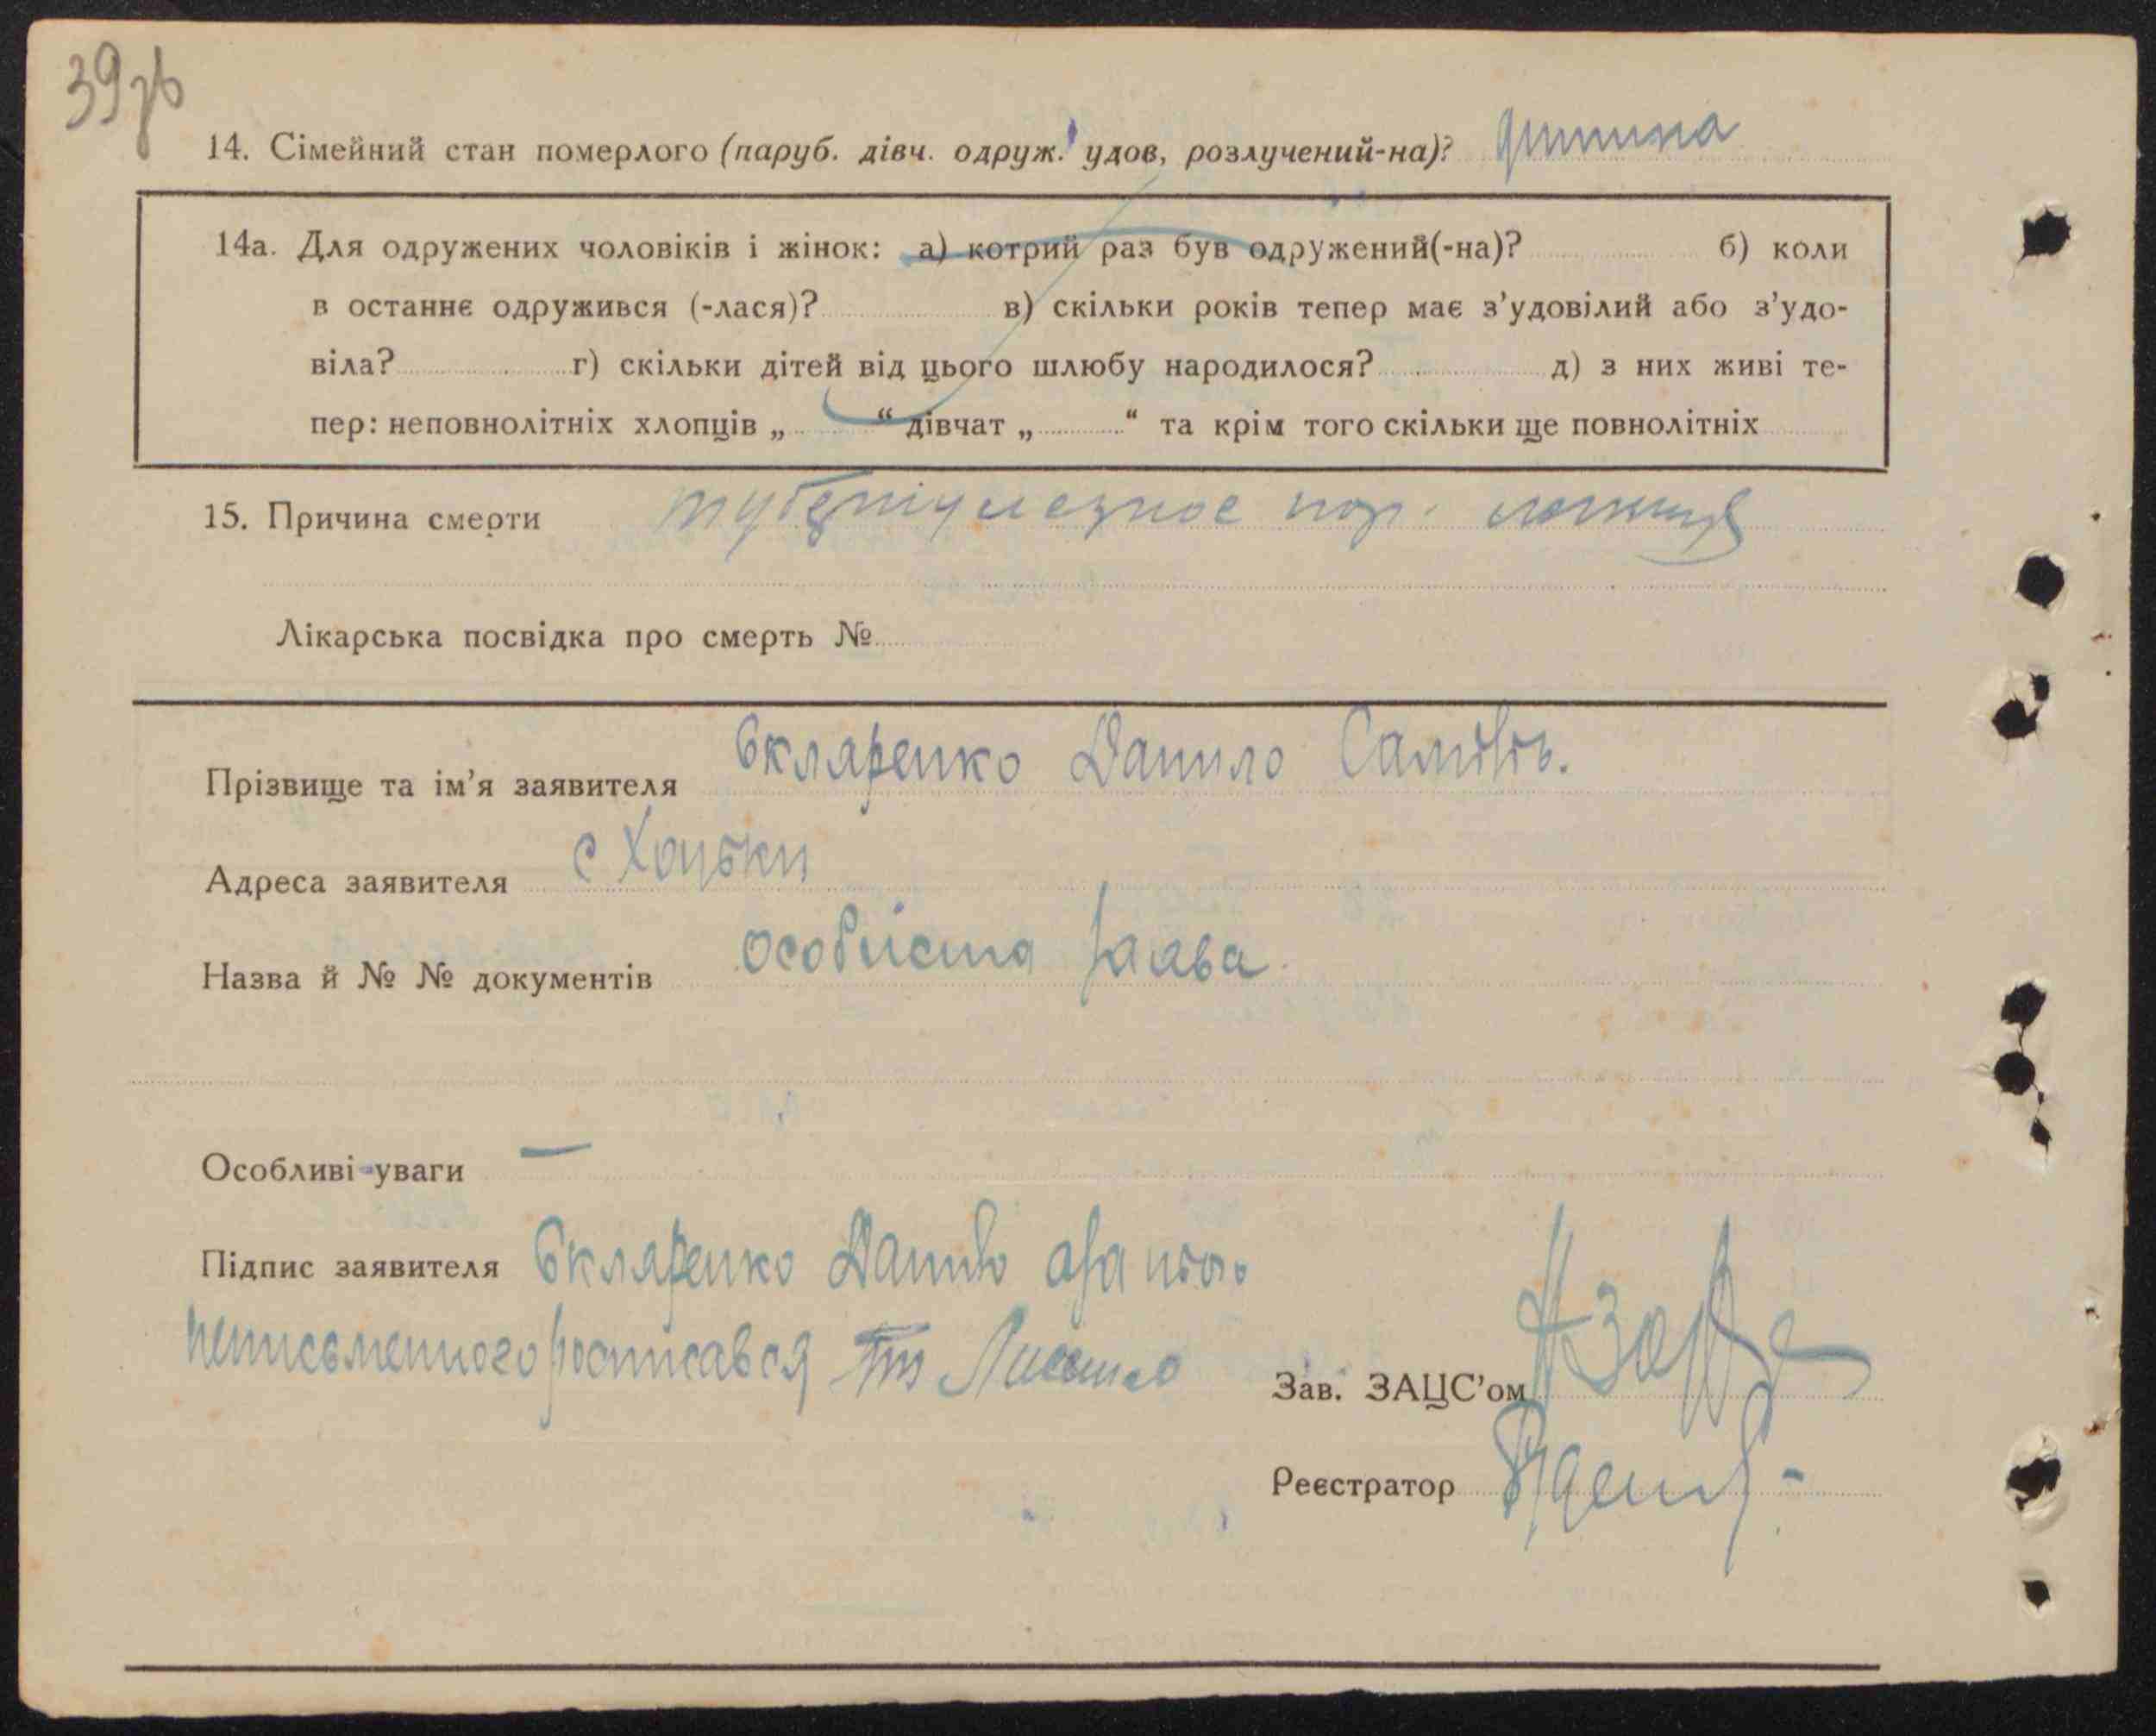 39 зв
14. Сімейний стан померлого (паруб. дівч. одруж. удов, розлучений-на)? дитина
14а. Для одружених чоловіків і жінок: а) котрий раз був одружений(-на)? б) коли
в останнє одружився (-лася)? в) скільки років тепер має з’удовілий або з’удо-
віла? г) скільки дітей від цього шлюбу народилося? д) з них живі те-
пер: неповнолітніх хлопців „ “ дівчат „ “ та крім того скільки ще повнолітніх
15. Причина смерти туберкулезное пор.
Лікарська посвідка про смерть №
Прізвище та ім’я заявителя Скляренко Данило
Адреса заявителя с Хоцьки
Назва й № № документів особиста заява
Особливі уваги —
Підпис заявителя Скляренко Данило а за його
неписьменного росписався
Зав. ЗАЦС’ом
Реєстратор